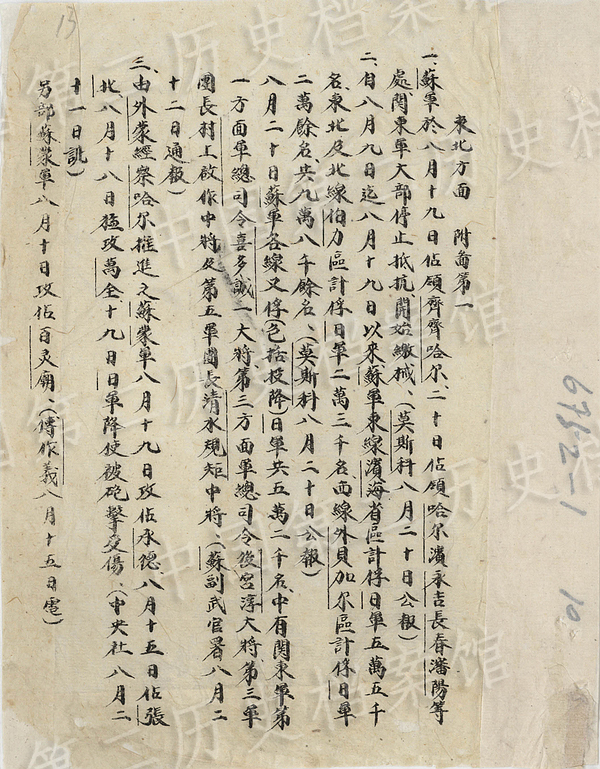 東北方面　附圖第一
一、蘇軍於八月十九日佔領齊齊哈尔、二十日佔領哈尔濱永吉長春瀋陽等
處、関東軍大部停止抵抗開始繳械、（莫斯科八月二十日公報）
二、自八月九日迄八月十九日以來蘇軍東線濱海省區計俘日軍五萬五千
名、東北及北線伯力區計俘日軍二萬三千名、西線外貝加尔區計俘日軍
二萬餘名、共九萬八千餘名、（莫斯科八月二十日公報）
八月二十日蘇軍各線又俘（包括投降）日軍共五萬二千名、中有関東軍第
一方面軍總司令喜多誠一大將、第三方面軍總司令後宮淳大將第三軍
團長村上啟作中將及第五軍團長清水規矩中將、（蘇副武官署八月二
十二日通報）
三、由外蒙經察哈尔推進之蘇蒙軍八月十九日攻佔承德、八月十五日佔張
北、八月十八日猛攻萬全十九日日軍降使被砲擊受傷、（中央社八月二
十一日訊）
另部蘇蒙軍八月十日攻佔百灵廟、（傅作義八月十五日電）
13
679.2-1
10
中国第二历史档案馆